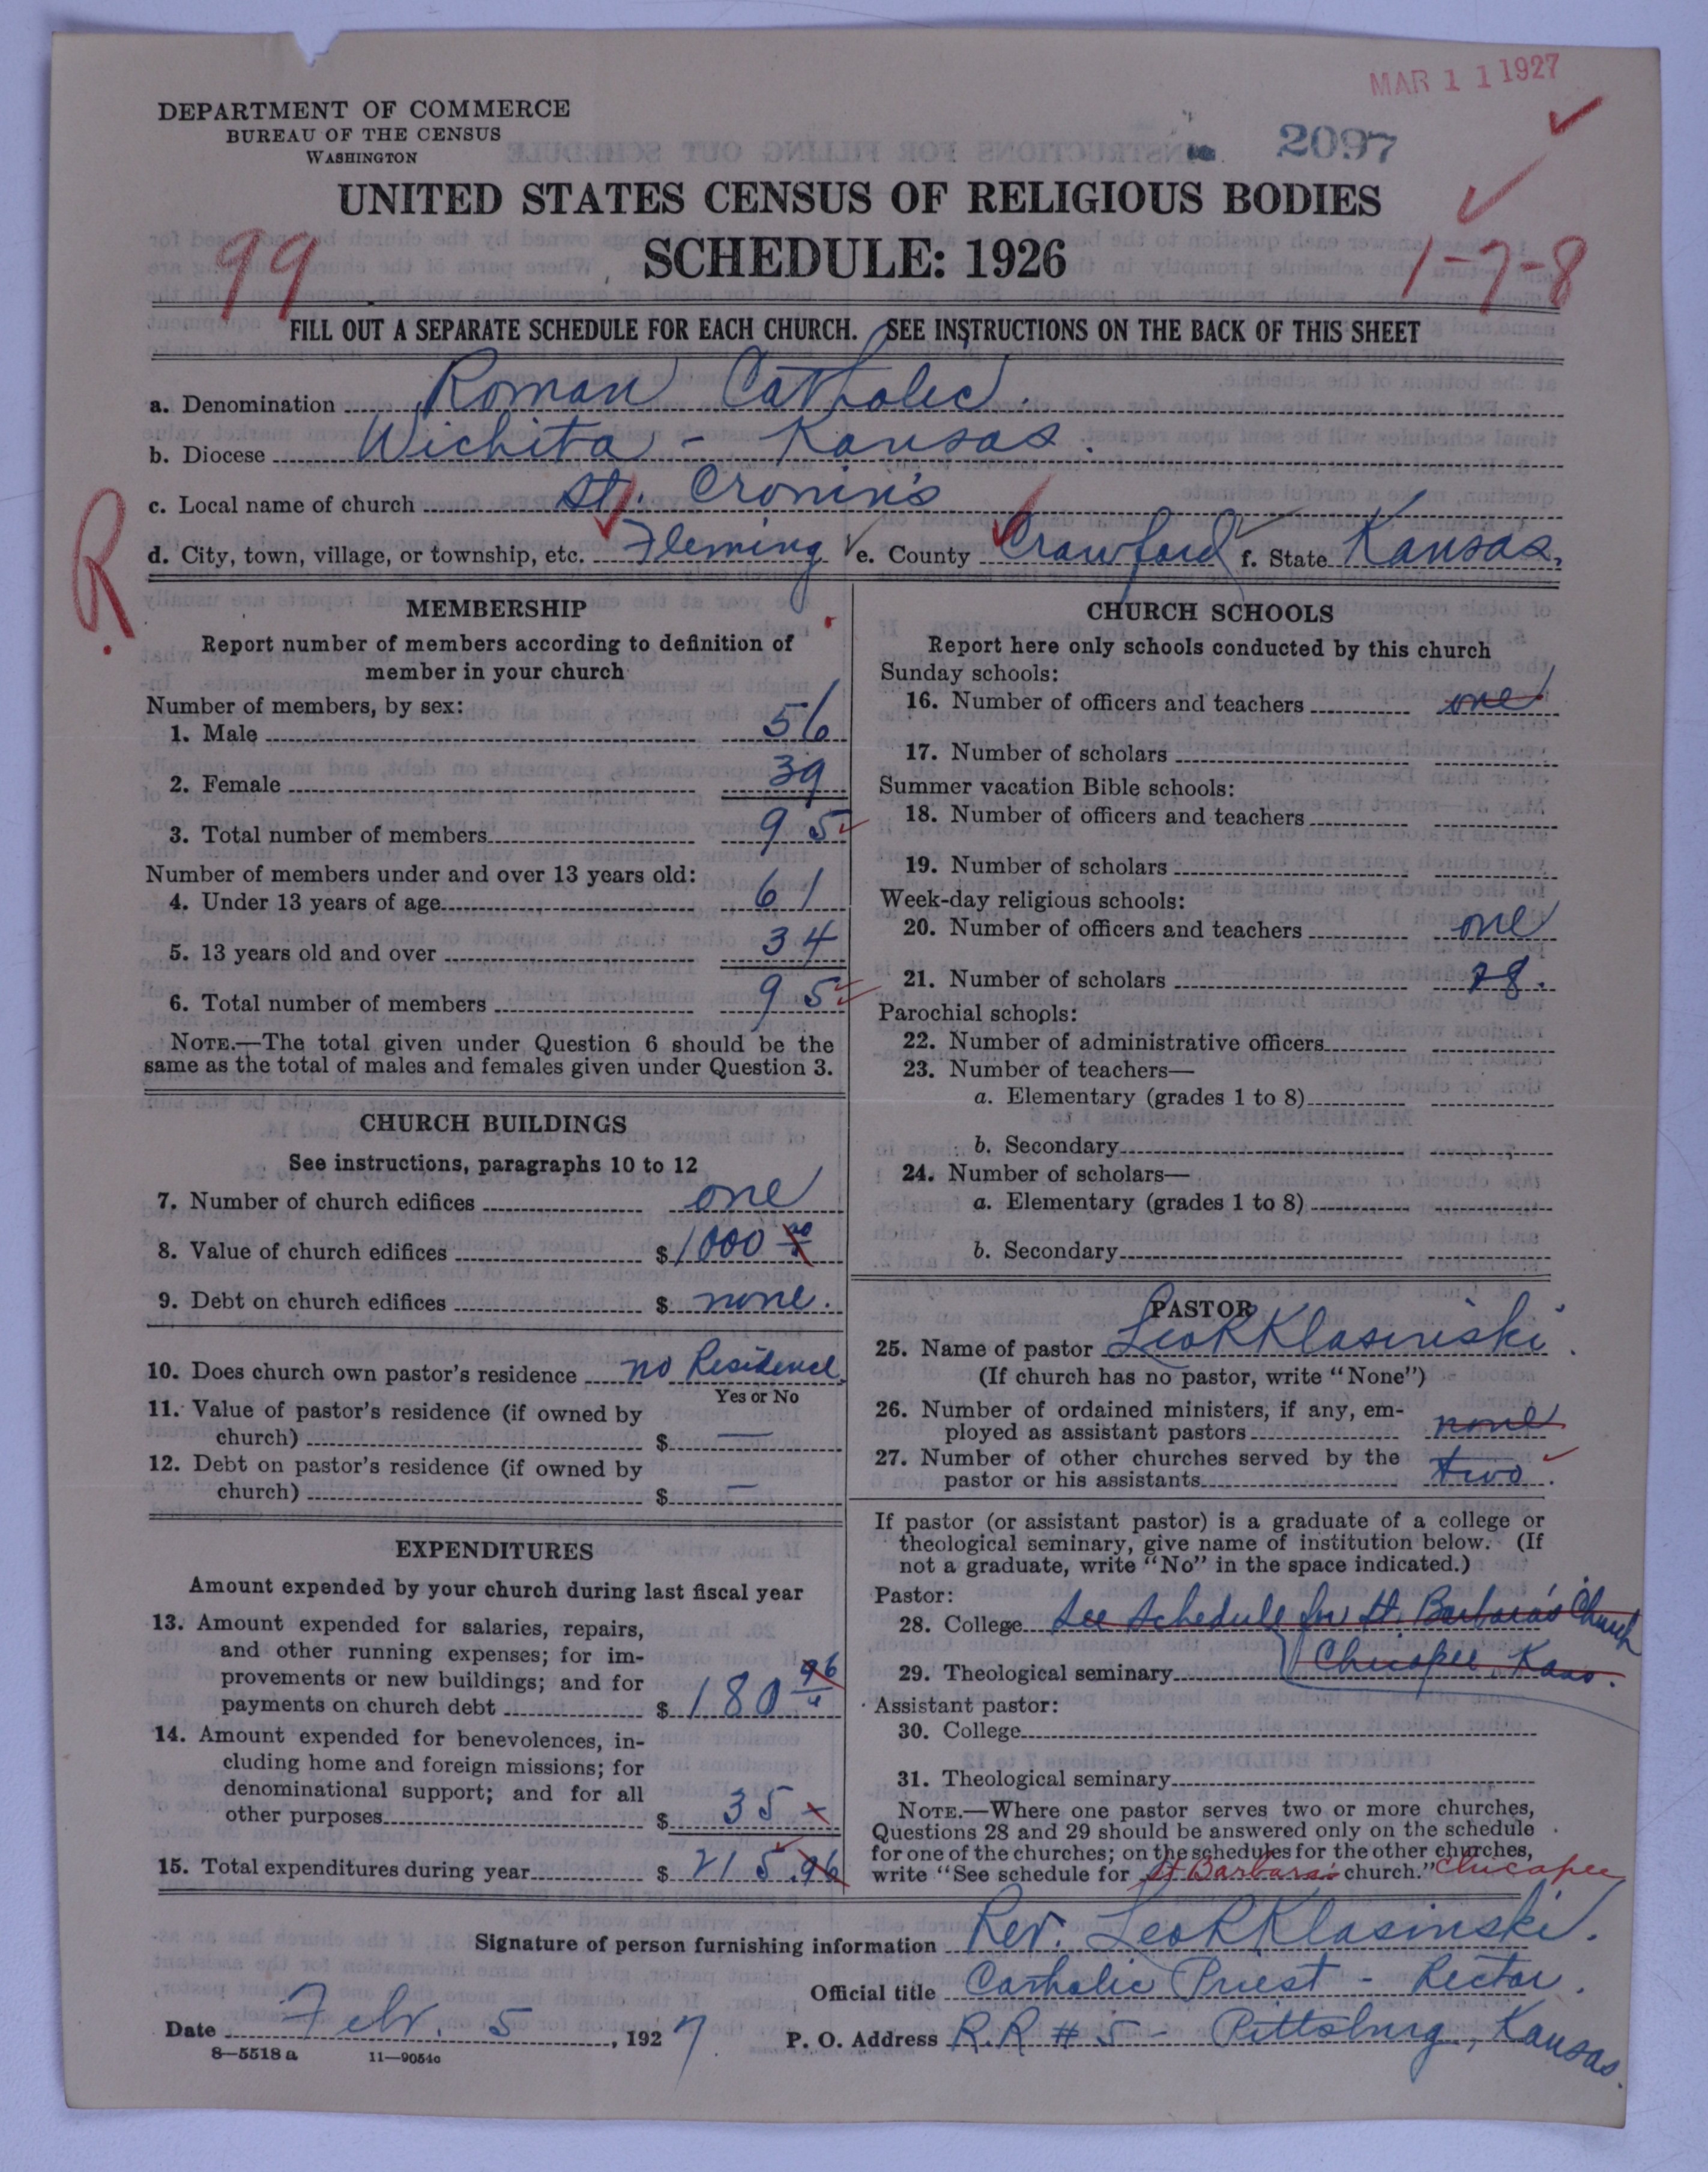 MAR 11 1927
DEPARTMENT OF COMMERCE
BUREAU OF THE CENSUS
WASHINGTON
2097
UNITED STATES CENSUS OF RELIGIOUS BODIES
SCHEDULE: 1926
99
1-7-8
FILL OUT A SEPARATE SCHEDULE FOR EACH CHURCH. SEE INSTRUCTIONS ON THE BACK OF THIS SHEET
a. Denomination Roman Catholic.
b. Diocese Wichita - Kansas.
c. Local name of church St. Cronin's
R.
d. City, town, village, or township, etc. Fleming e. County Crawford f. State Kansas.
MEMBERSHIP
Report number of members according to definition of
member in your church
Number of members, by sex:
1. Male 56
2. Female 39
3. Total number of members 95
Number of members under and over 13 years old:
4. Under 13 years of age 61
5. 13 years old and over 34
6. Total number of members 95
NOTE.—The total given under Question 6 should be the
same as the total of males and females given under Question 3.
CHURCH BUILDINGS
See instructions, paragraphs 10 to 12
7. Number of church edifices one
8. Value of church edifices $ 1000 00
9. Debt on church edifices $ none.
10. Does church own pastor's residence no Residence
Yes or No
11. Value of pastor's residence (if owned by
church) $ —
12. Debt on pastor's residence (if owned by
church) $ —
EXPENDITURES
Amount expended by your church during last fiscal year
13. Amount expended for salaries, repairs,
and other running expenses; for im-
provements or new buildings; and for
payments on church debt $ 180 96
14. Amount expended for benevolences, in-
cluding home and foreign missions; for
denominational support; and for all
other purposes $ 35
15. Total expenditures during year $ 215.96
CHURCH SCHOOLS
Report here only schools conducted by this church
Sunday schools:
16. Number of officers and teachers one
17. Number of scholars
Summer vacation Bible schools:
18. Number of officers and teachers
19. Number of scholars
Week-day religious schools:
20. Number of officers and teachers one
21. Number of scholars 28.
Parochial schools:
22. Number of administrative officers
23. Number of teachers—
a. Elementary (grades 1 to 8)
b. Secondary
24. Number of scholars—
a. Elementary (grades 1 to 8)
b. Secondary
PASTOR
25. Name of pastor Leo R Klasinski.
(If church has no pastor, write "None")
26. Number of ordained ministers, if any, em-
ployed as assistant pastors none
27. Number of other churches served by the
pastor or his assistants two.
If pastor (or assistant pastor) is a graduate of a college or
theological seminary, give name of institution below. (If
not a graduate, write "No" in the space indicated.)
Pastor:
28. College See schedule for St. Barbara's Church
29. Theological seminary Chicopee Kans.
Assistant pastor:
30. College
31. Theological seminary
NOTE.—Where one pastor serves two or more churches,
Questions 28 and 29 should be answered only on the schedule
for one of the churches; on the schedules for the other churches,
write "See schedule for St Barbara's church." Chicopee
Signature of person furnishing information Rev. Leo R Klasinski.
Official title Catholic Priest - Rector.
Date Febr. 5, 1927 P. O. Address R.R # 5 - Pittsburg, Kansas.
8—5518 a 11—9054c